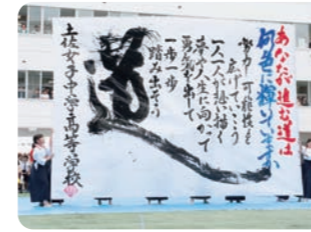 あなたが進む道は
何色に輝いていますか
努力し可能性を
広げていこう
一人一人が思い描く
夢や人生に向かって
勇気を出して
一歩一歩
踏み出そう
道
土佐女子中学高等学校